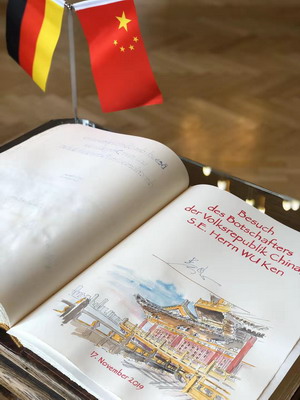 Besuch
des Botschafters
der Volksrepublik China
S.E. Herrn WU Ken
17. November 2019